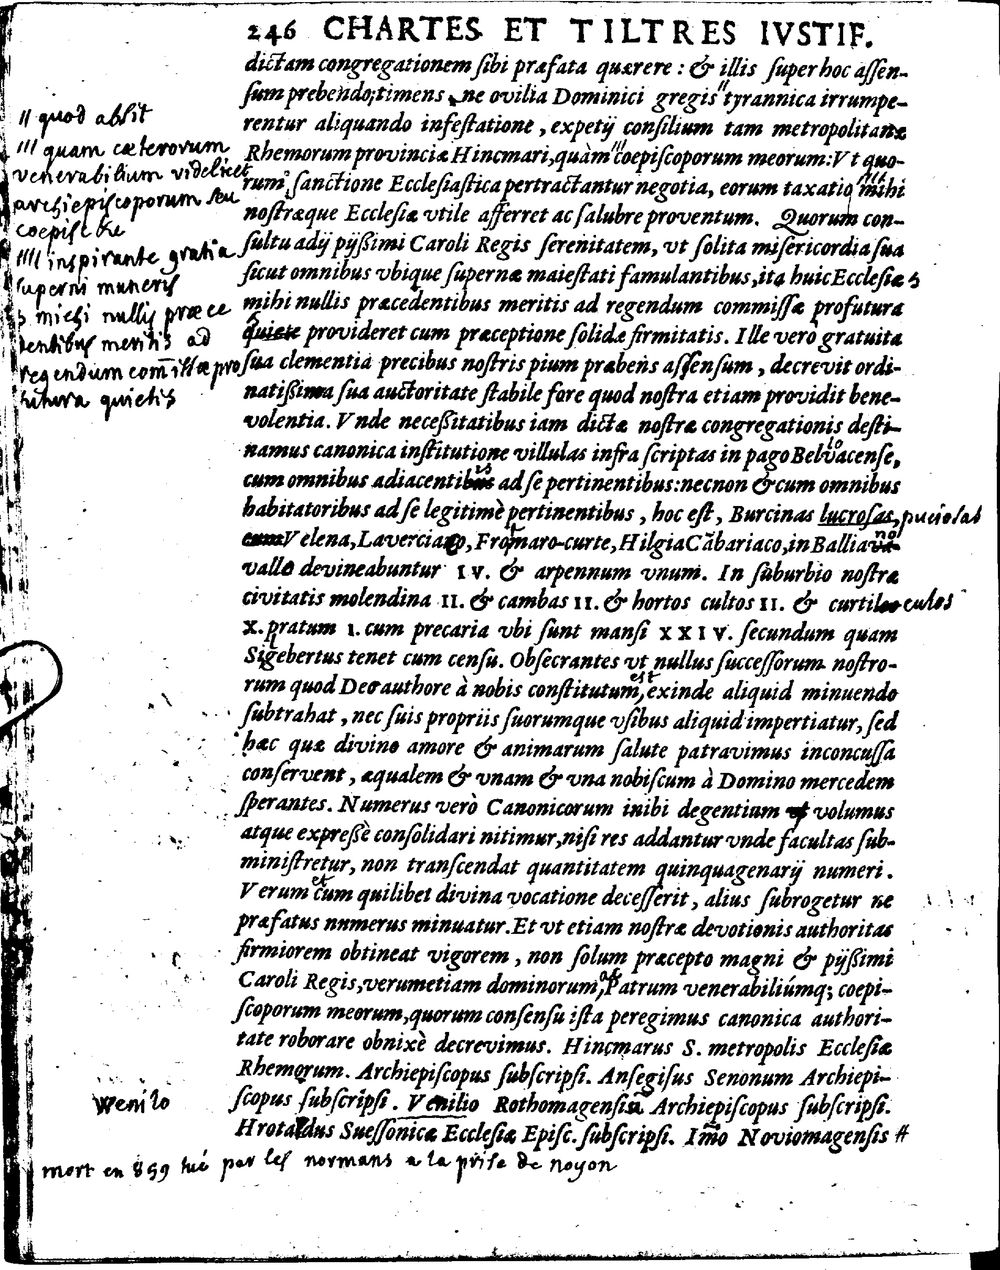 246 CHARTES ET TILTRES IVSTIF.
dictam congregationem sibi præfata quærere : & illis super hoc assen-
sum prebendo; timens, ne ovilia Dominici gregis" tyrannica irrumpe-
rentur aliquando infestatione, expetij consilium tam metropolitanæ
Rhemorum provinciæ Hincmari, quàm''' coepiscoporum meorum: Vt quo-
rum sanctione Ecclesiastica pertractantur negotia, eorum taxatio'''' mihi
nostræque Ecclesiæ vtile afferret ac salubre proventum. Quorum con-
sultu adij pijßimi Caroli Regis serenitatem, vt solita misericordia sua
sicut omnibus vbique supernæ maiestati famulantibus, ita huic Ecclesiæ
mihi nullis præcedentibus meritis ad regendum commissæ profutura
quiete provideret cum præceptione solidæ firmitatis. Ille verò gratuita
sua clementia precibus nostris pium præbens assensum, decrevit ordi-
natißima sua auctoritate stabile fore quod nostra etiam providit bene-
volentia. Vnde neceßitatibus iam dictæ nostræ congregationis desti-
namus canonica institutione villulas infra scriptas in pago Belvacense,
cum omnibus adiacentibus ad se pertinentibus: necnon & cum omnibus
habitatoribus ad se legitimè pertinentibus, hoc est, Burcinas lucrosas, puciolas
cum Velena, Laverciaco, Fromaro-curte, Hilgia Cābariaco, in Ballia
valle devineabuntur IV. & arpennum vnum. In suburbio nostræ
civitatis molendina II. & cambas II. & hortos cultos II. & curtil culos
X. pratum I. cum precaria vbi sunt mansi XXIV. secundum quam
Sigebertus tenet cum censu. Obsecrantes vt nullus successorum nostro-
rum quod Deo authore à nobis constitutum est, exinde aliquid minuendo
subtrahat, nec suis propriis suorumque vsibus aliquid impertiatur, sed
hæc quæ divino amore & animarum salute patravimus inconcussa
conservent, æqualem & vnam & vna nobiscum à Domino mercedem
sperantes. Numerus verò Canonicorum inibi degentium vt volumus
atque expreßè consolidari nitimur, nisi res addantur vnde facultas sub-
ministretur, non transcendat quantitatem quinquagenarij numeri.
Verum et cum quilibet divina vocatione decesserit, alius subrogetur ne
præfatus nnmerus minuatur. Et vt etiam nostræ devotionis authoritas
firmiorem obtineat vigorem, non solum præcepto magni & pijßimi
Caroli Regis, verumetiam dominorum, ac Patrum venerabiliúmq; coepi-
scoporum meorum, quorum consensu ista peregimus canonica authori-
tate roborare obnixè decrevimus. Hincmarus S. metropolis Ecclesiæ
Rhemorum. Archiepiscopus subscripsi. Ansegisus Senonum Archiepi-
scopus subscripsi. Venilio Rothomagensis Archiepiscopus subscripsi.
Hrotaldus Suessonicæ Ecclesiæ Episc. subscripsi. Imo Noviomagensis #
" quod absit
''' quam cæterorum
venerabilium videlicet
archiepiscoporum seu
coepisc
'''' inspirante gratia
superni muneris
s michi nullis præce
dentibus meritis ad
regendum comissæ pro
futura quietis
wenilo
mort en 859 tué par les normans a la prise de noyon